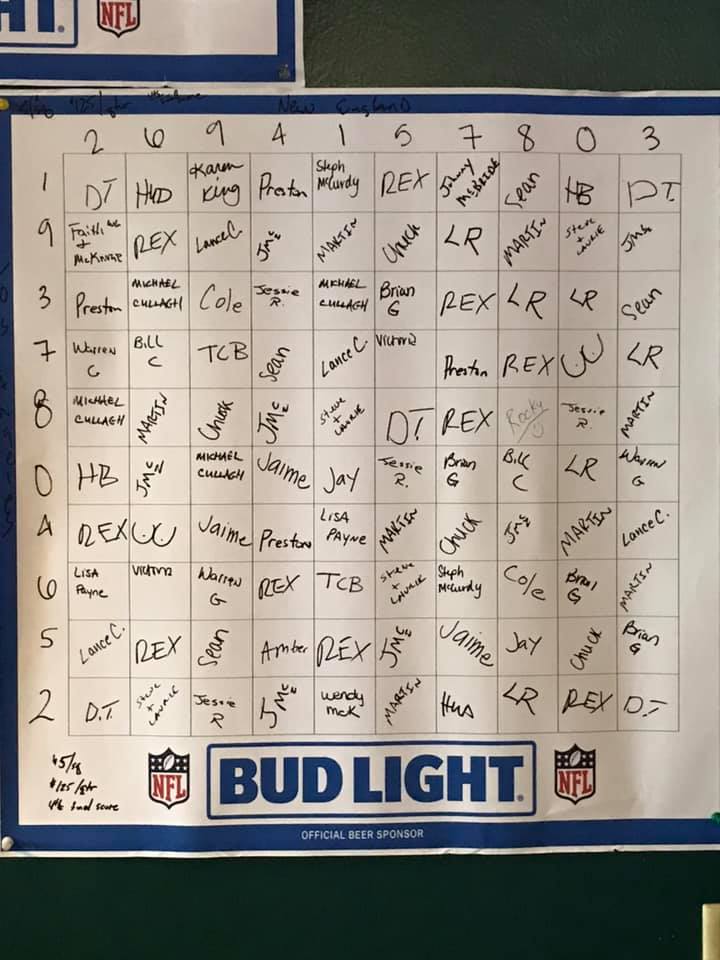 NFL
$125/qtr New England
2 6 9 4 1 5 7 8 0 3
1 DT HWD Karen King Preston Steph McCurdy REX Johnny McBride Sean HB DT
9 Faith + McKenzie REX Lance C JMc MARTIN Chuck LR MARTIN Steve + LAURIE JMc
3 Preston MICHAEL CULLAGH Cole Jessie R. MICHAEL CULLAGH Brian G REX LR LR Sean
7 Warren G Bill C TCB Sean Lance C. Victoria Preston REX LR
8 MICHAEL CULLAGH MARTIN Chuck JMc Steve + LAURIE DT REX Rocky Jessie R. MARTIN
0 HB JMc MICHAEL CULLAGH Jaime Jay Jessie R. Brian G Bill C LR Warren G
4 REX Jaime Preston LISA PAYNE MARTIN Chuck JMc MARTIN Lance C.
6 LISA Payne Victoria Warren G REX TCB Steve + LAURIE Steph McCurdy Cole Brian G MARTIN
5 Lance C. REX Sean Amber REX JMc Jaime Jay Chuck Brian G
2 D.T. Steve + LAURIE Jessie R JMc Wendy McK MARTIN LR REX D.T
$5/sq
$125/qtr
4th final score
NFL BUD LIGHT. NFL
OFFICIAL BEER SPONSOR